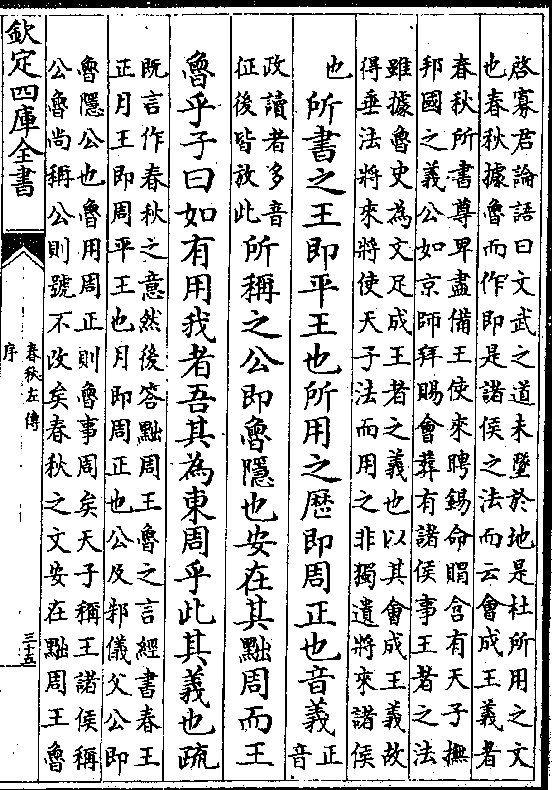 啓寡君論語曰文武之道未墜於地是杜所用之文
也春秋據魯而作即是諸侯之法而云會成王義者
春秋所書尊卑盡備王使來聘錫命賵含有天子撫
邦國之義公如京師拜賜會葬有諸侯事王者之法
雖據魯史為文足成王者之義也以其會成王義故
得垂法將來將使天子法而用之非獨遺將來諸侯
也所書之王即平王也所用之厯即周正也音義正音
政讀者多音征後皆放此所稱之公即魯隱也安在其黜周而王
魯乎子曰如有用我者吾其為東周乎此其義也疏
既言作春秋之意然後答黜周王魯之言經書春王
正月王即周平王也月即周正也公及邾儀父公即
魯隱公也魯用周正則魯事周矣天子稱王諸侯稱
公魯尚稱公則號不改矣春秋之文安在黜周王魯
欽定四庫全書
春秋左傳
序
三十五